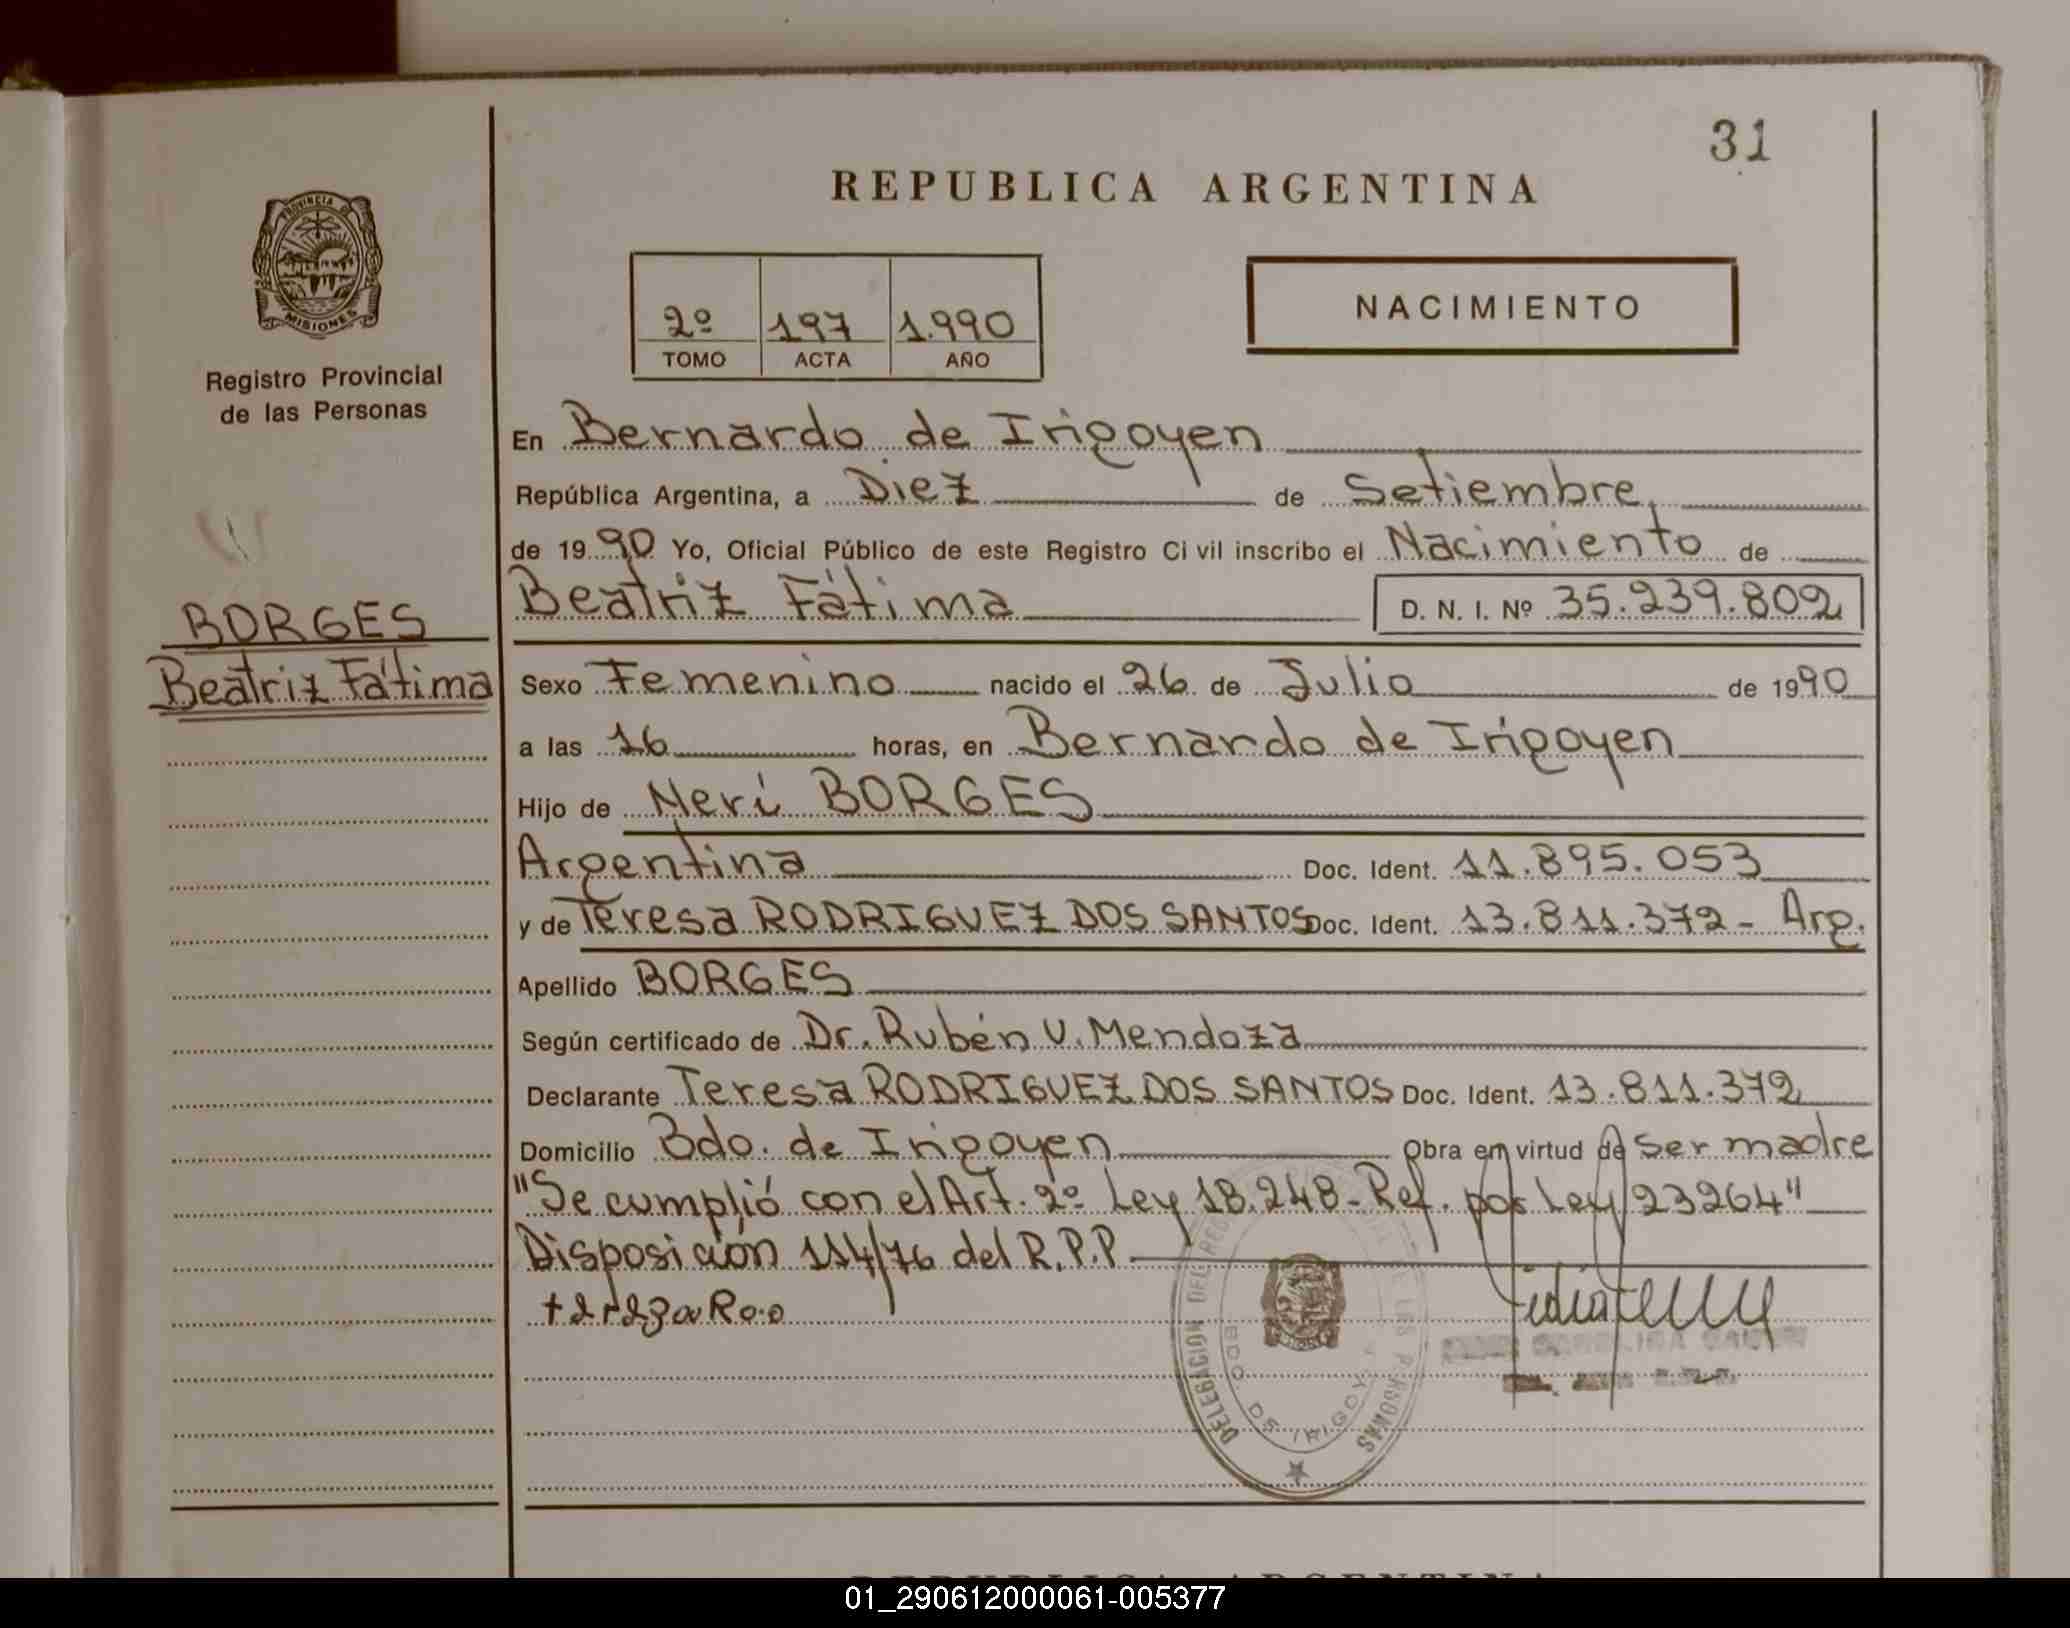 31
REPUBLICA ARGENTINA
PROVINCIA DE
MISIONES
Registro Provincial
de las Personas
2º 197 1.990
TOMO ACTA AÑO
NACIMIENTO
En Bernardo de Irigoyen
República Argentina, a Diez de Setiembre
de 1990 Yo, Oficial Público de este Registro Civil inscribo el Nacimiento de
Beatriz Fátima D. N. I. Nº 35.239.802
BORGES
Beatriz Fátima
Sexo Femenino nacido el 26 de Julio de 1990
a las 16 horas, en Bernardo de Irigoyen
Hijo de Neri BORGES
Argentina Doc. Ident. 11.895.053
y de Teresa RODRIGUEZ DOS SANTOS Doc. Ident. 13.811.372 - Arg.
Apellido BORGES
Según certificado de Dr. Rubén V. Mendoza
Declarante Teresa RODRIGUEZ DOS SANTOS Doc. Ident. 13.811.372
Domicilio Bdo. de Irigoyen Obra en virtud de ser madre
"Se cumplió con el Art. 2º Ley 18.248 - Ref. por Ley 23264"
Disposición 114/76 del R.P.P.
DELEGACION DEL REG PERSONAS
BDO. DE IRIGOY
REPUBLICA ARGENTINA
01_290612000061-005377